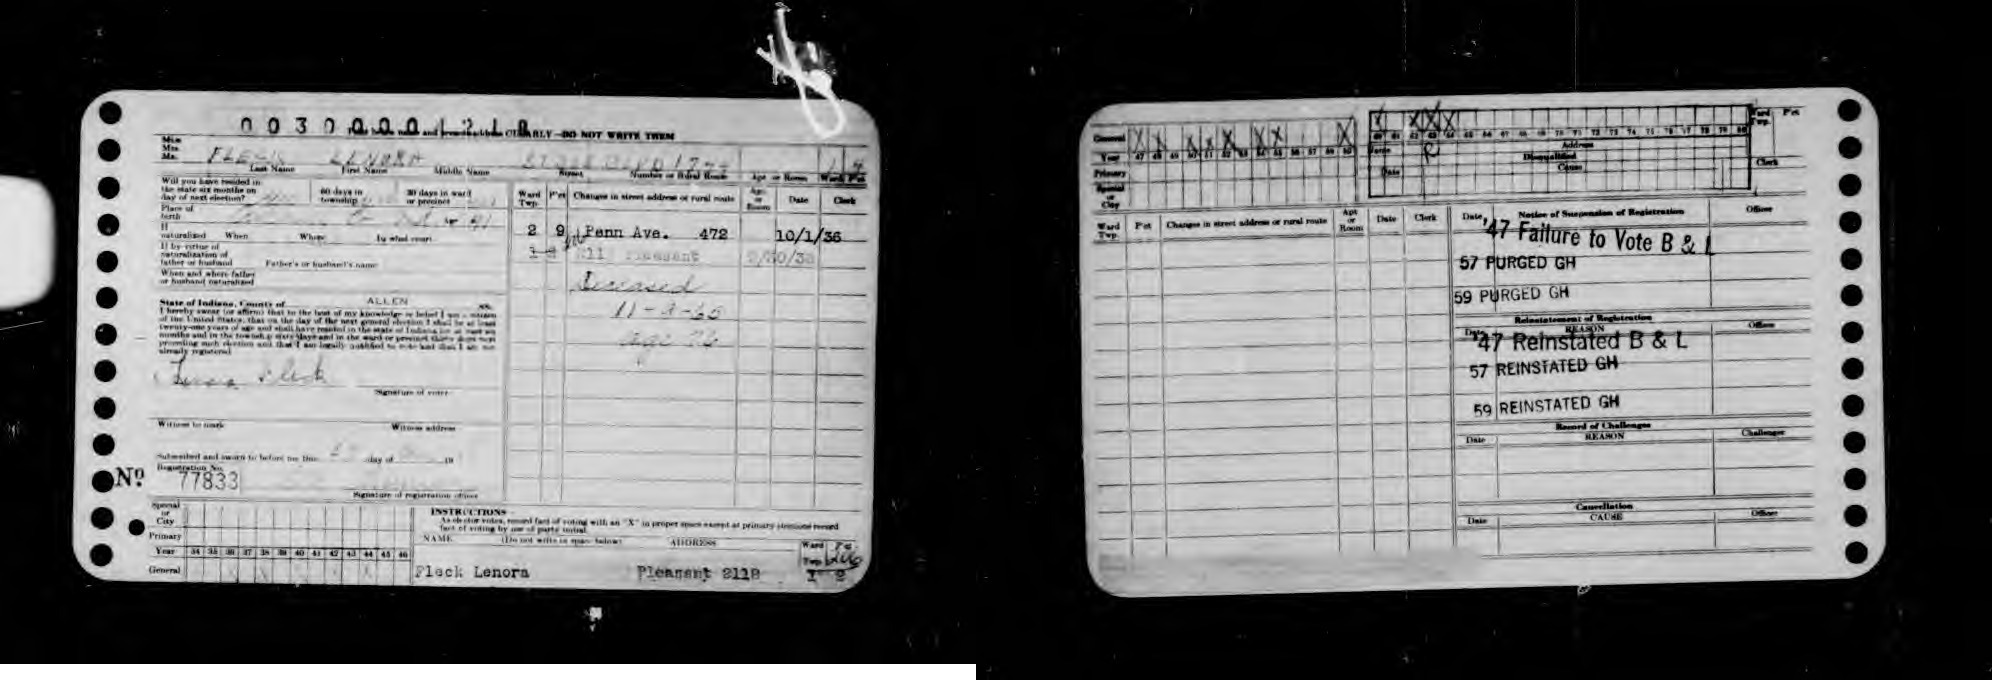 0030000 1218
CLEARLY—DO NOT WRITE THEM
Miss
Mrs.
Mr. FLECK LENORA STATE BLVD 1 4
Last Name First Name Middle Name Street Number or Rural Route Apt or Room Ward Pct
Will you have resided in
the state six months on
day of next election?
60 days in
township
30 days in ward
or precinct
Place of
birth
If
naturalized When Where In what court
If by virtue of
naturalization of
father or husband Father's or husband's name
When and where father
or husband naturalized
State of Indiana, County of ALLEN ss.
I hereby swear (or affirm) that to the best of my knowledge or belief I am a citizen
of the United States, that on the day of the next general election I shall be at least
twenty-one years of age and shall have resided in the state of Indiana for at least six
months and in the township sixty days and in the ward or precinct thirty days next
preceding such election and that I am legally qualified to vote and that I am not
already registered
Lenora Fleck
Signature of voter
Witness to mark Witness address
Subscribed and sworn to before me this day of 19
Registration No.
No 77833
Signature of registration officer
Ward
Twp. Pct Changes in street address or rural route Apt.
or
Room Date Clerk
2 9 Penn Ave. 472 10/1/36
Pleasant
Deceased
11-3-65
age 76
Special
or
City
Primary
Year 34 35 36 37 38 39 40 41 42 43 44 45 46
General
INSTRUCTIONS
As elector votes, record fact of voting with an "X" in proper space except at primary elections record
fact of voting by use of party initial.
NAME (Do not write in space below) ADDRESS Ward
Twp. Pct
Fleck Lenora Pleasant 2118 206
1 2
General X X X X X X X X
Year 47 48 49 50 51 52 53 54 55 56 57 58 59
Primary
Special
or
City
X X X X
60 61 62 63 64 65 66 67 68 69 70 71 72 73 74 75 76 77 78 79 80
Ward
Twp. Pct
R
Address
Disqualified
Cause
Date
Clerk
Ward
Twp. Pct Changes in street address or rural route Apt
or
Room Date Clerk
Date Notice of Suspension of Registration Officer
'47 Failure to Vote B & L
57 PURGED GH
59 PURGED GH
Reinstatement of Registration
Date REASON Officer
'47 Reinstated B & L
57 REINSTATED GH
59 REINSTATED GH
Record of Challenges
Date REASON Challenger
Cancellation
Date CAUSE Officer